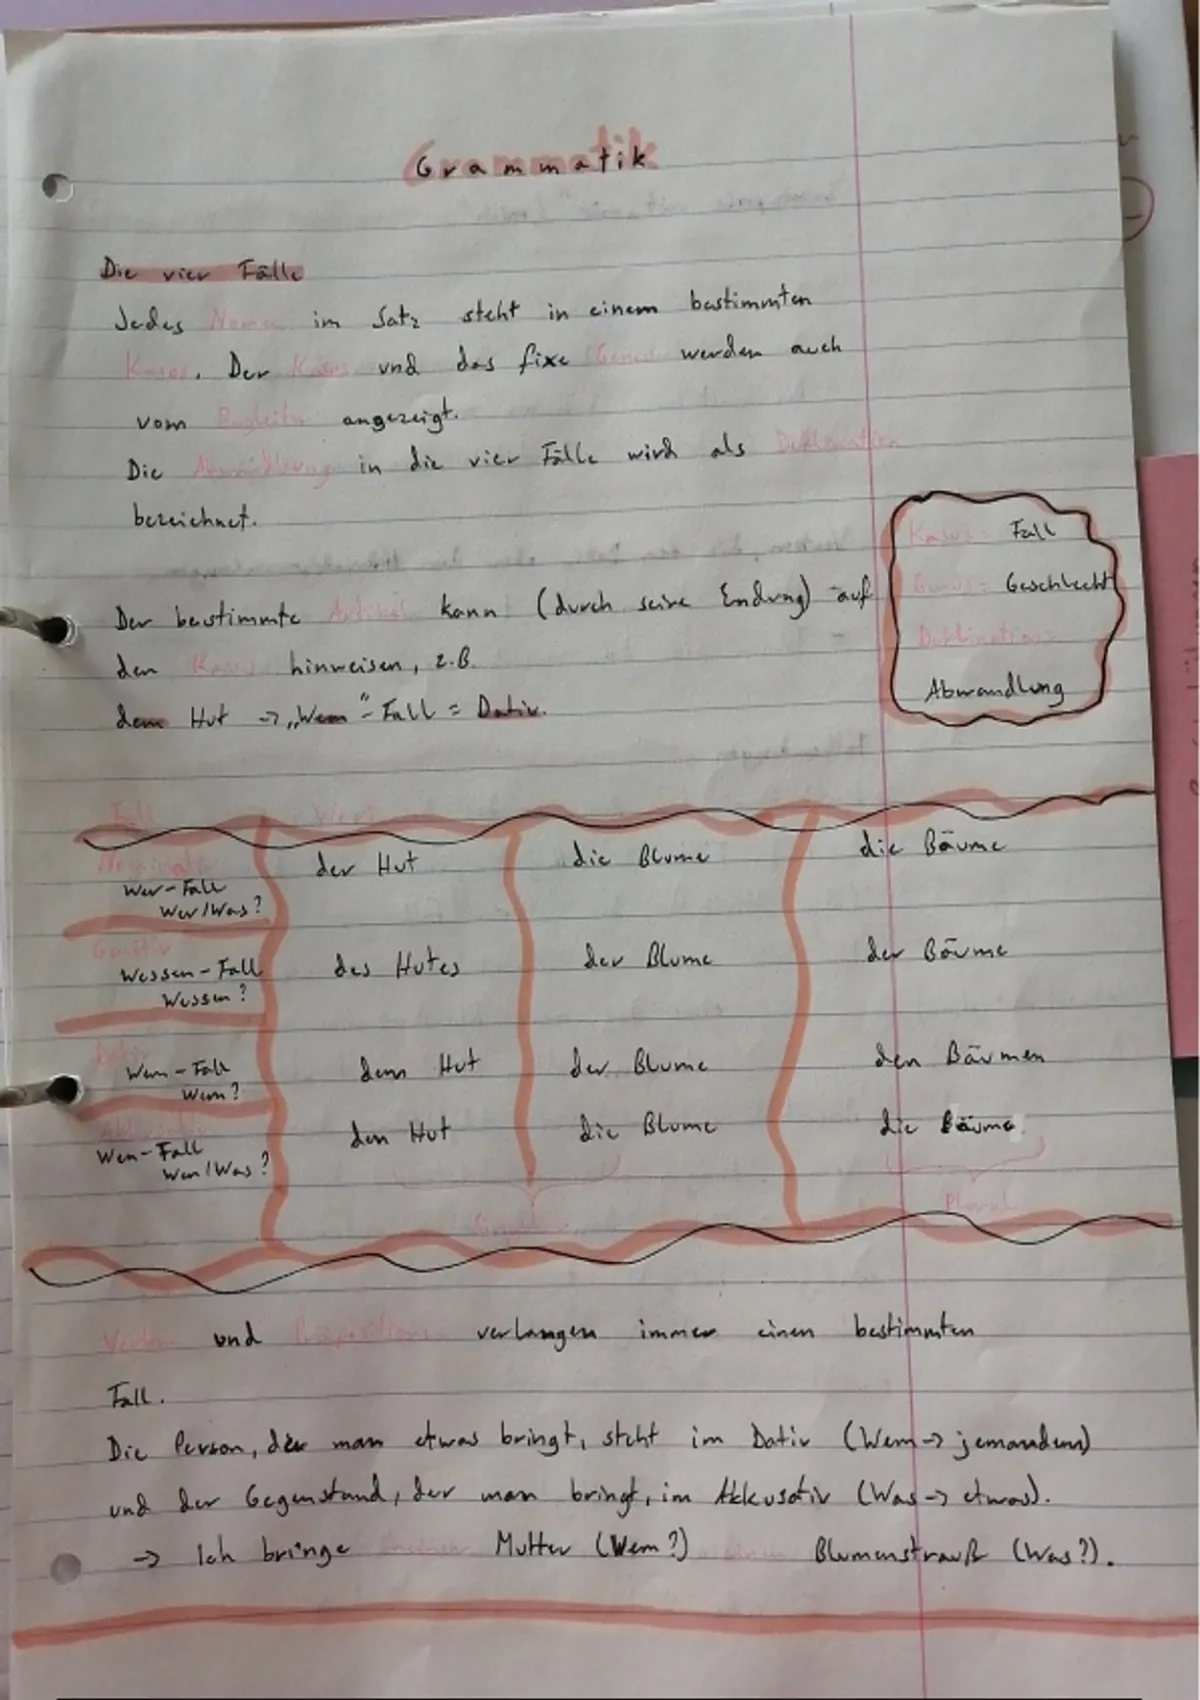 Grammatik
Die vier Fälle
Jedes Nomen im Satz steht in einem bestimmten
Kasus. Der Kasus und das fixe Genus werden auch
vom Begleiter angezeigt.
Die Abwandlung in die vier Fälle wird als Deklination
bezeichnet.
Kasus = Fall
Genus = Geschlecht
Deklination =
Abwandlung
Der bestimmte Artikel kann (durch seine Endung) auf
den Kasus hinweisen, z.B.
dem Hut -> „Wem"-Fall = Dativ.
Fall Wort
Nominativ der Hut die Blume die Bäume
Wer-Fall
Wer/Was?
Genetiv des Hutes der Blume der Bäume
Wessen-Fall
Wessen?
Dativ dem Hut der Blume den Bäumen
Wem-Fall
Wem?
Akkusativ den Hut die Blume die Bäume
Wen-Fall
Wen/Was?
Singular Plural
Verben und Präpositionen verlangen immer einen bestimmten
Fall.
Die Person, der man etwas bringt, steht im Dativ (Wem -> jemandem)
und der Gegenstand, der man bringt, im Akkusativ (Was -> etwas).
-> Ich bringe meiner Mutter (Wem?) einen Blumenstrauß (Was?).